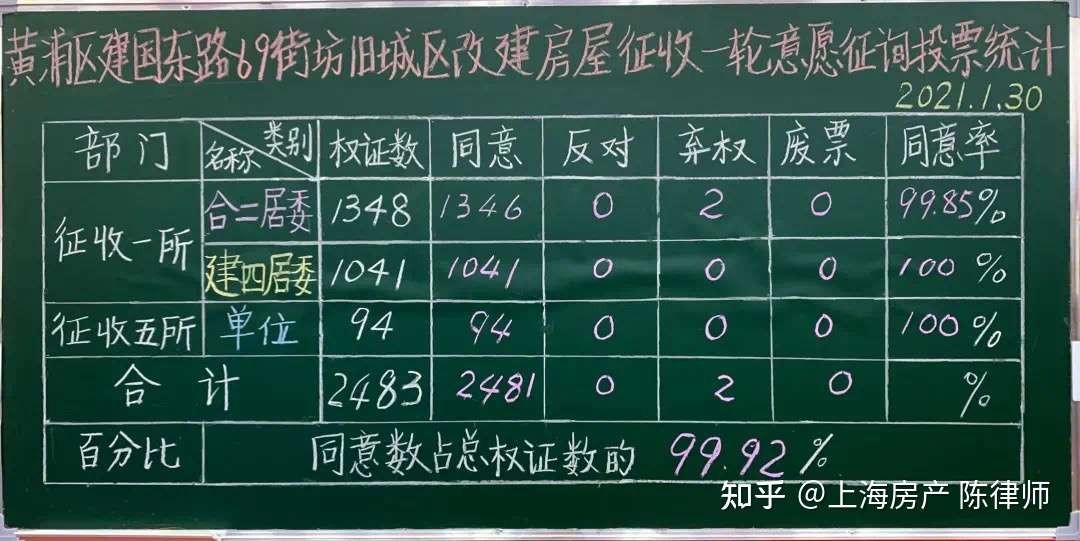 黄浦区建国东路69街坊旧城区改建房屋征收一轮意愿征询投票统计
2021.1.30
部门 名称 类别 权证数 同意 反对 弃权 废票 同意率
征收一所 合二居委 1348 1346 0 2 0 99.85%
建四居委 1041 1041 0 0 0 100%
征收五所 单位 94 94 0 0 0 100%
合计 2483 2481 0 2 0 %
百分比 同意数占总权证数的 99.92%
知乎 @上海房产 陈律师